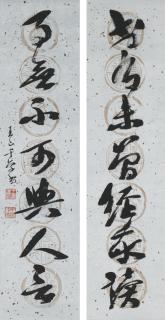 書有未曾經我讀
事無不可與人言